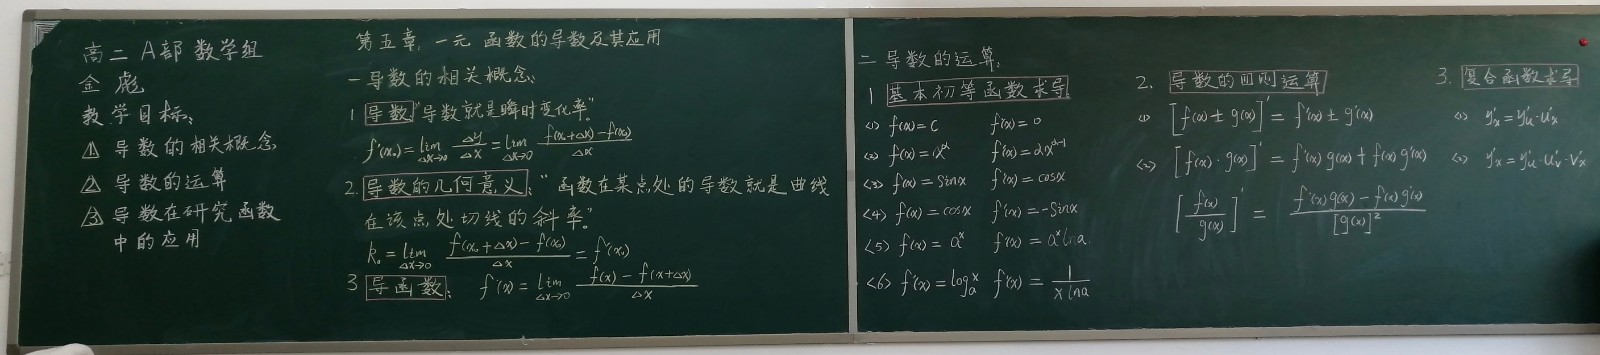 高二 A部 数学组
金 彪
教学目标:
① 导数的相关概念
② 导数的运算
③ 导数在研究函数
中的应用
第五章 一元函数的导数及其应用
一 导数的相关概念:
1 导数:"导数就是瞬时变化率"。
f'(x₀)=lim_{Δx→0} Δy/Δx = lim_{Δx→0} (f(x₀+Δx)-f(x₀))/Δx
2. 导数的几何意义:"函数在某点处的导数就是曲线
在该点处切线的斜率"
k₀=lim_{Δx→0} (f(x₀+Δx)-f(x₀))/Δx = f'(x₀)
3 导函数: f'(x)=lim_{Δx→0} (f(x)-f(x+Δx))/Δx
二 导数的运算:
1 基本初等函数求导
<1> f(x)=C f'(x)=0
<2> f(x)=x^α f'(x)=αx^{α-1}
<3> f(x)=sinx f'(x)=cosx
<4> f(x)=cosx f'(x)=-sinx
<5> f(x)=a^x f'(x)=a^x lna
<6> f'(x)=log_a^x f'(x)=1/(x lna)
2. 导数的四则运算
<1> [f(x)±g(x)]'=f'(x)±g'(x)
<2> [f(x)·g(x)]'=f'(x)g(x)+f(x)g'(x)
[f(x)/g(x)]'=(f'(x)g(x)-f(x)g'(x))/[g(x)]²
3. 复合函数求导
<1> y'ₓ=y'ᵤ·u'ₓ
<2> y'ₓ=y'ᵤ·u'ᵥ·v'ₓ